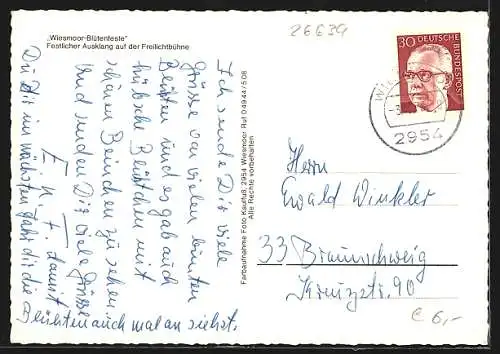 „Wiesmoor-Blütenfeste"
Festlicher Ausklang auf der Freilichtbühne
26639
30 DEUTSCHE
BUNDESPOST
2954
Ich sende Dir viele
Grüsse von vielen bunten
Blüten und es gab auch
hübsche Blüstchen mit
schönen Beinchen zu sehen.
und senden Dir viele Grüsse
E. u. F. damit
Du Dir im nächsten Jahr dir die
Blühten auch mal an siehst.
Farbaufnahme Foto Kaufluß, 2954 Wiesmoor Ruf 04944/508
Alle Rechte vorbehalten
Herrn
Ewald Winkler
33 Braunschweig
Kreuzstr. 90
€ 6,-